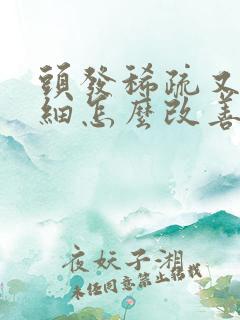 頭發稀疏又
細怎麼改善
夜妖子湘
未經同意禁止轉載